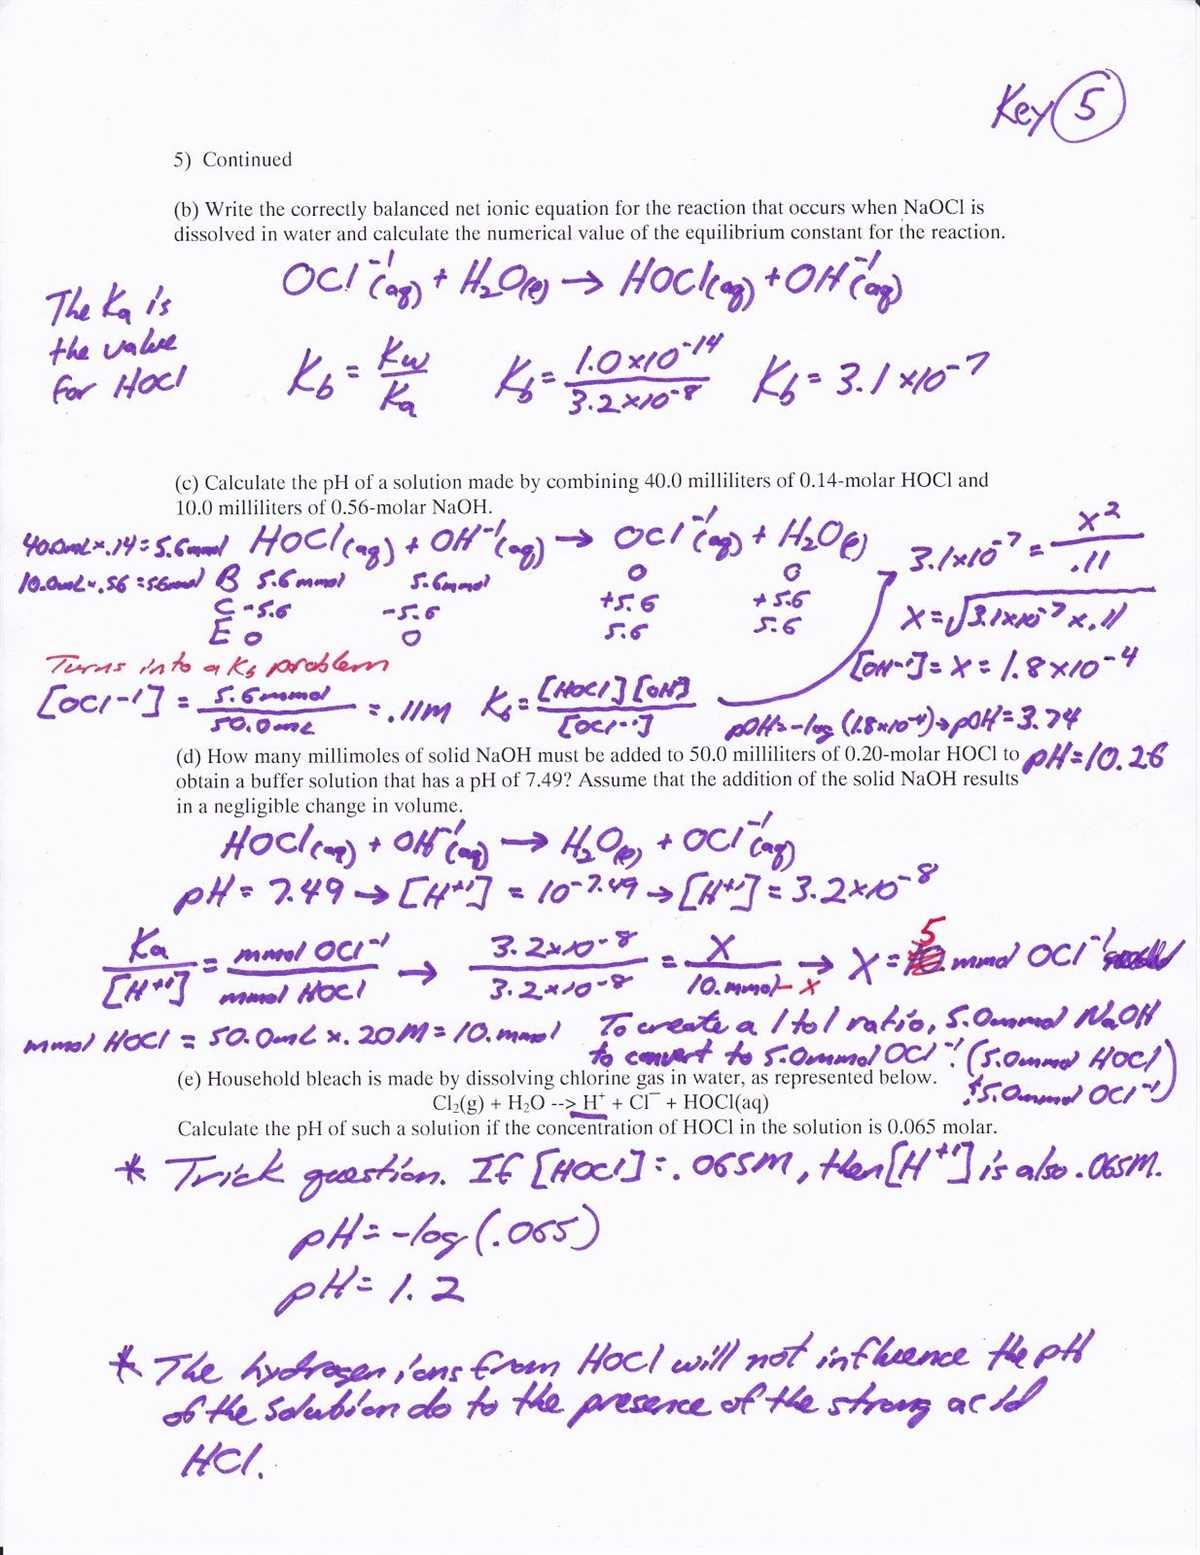 Key 5
5) Continued
(b) Write the correctly balanced net ionic equation for the reaction that occurs when NaOCl is
dissolved in water and calculate the numerical value of the equilibrium constant for the reaction.
OCl⁻¹(aq) + H₂O(l) → HOCl(aq) + OH⁻¹(aq)
The Ka is
the value
for HOCl
Kb = Kw/Ka Kb = 1.0x10⁻¹⁴/3.2x10⁻⁸ Kb = 3.1x10⁻⁷
(c) Calculate the pH of a solution made by combining 40.0 milliliters of 0.14-molar HOCl and
10.0 milliliters of 0.56-molar NaOH.
40.0mLx.14=5.6mmol HOCl(aq) + OH⁻¹(aq) → OCl⁻¹(aq) + H₂O(l) 3.1x10⁻⁷ = x²/.11
10.0mLx.56=5.6mmol B 5.6mmol 5.6mmol 0 0
C -5.6 -5.6 +5.6 +5.6 x=√3.1x10⁻⁷x.11
E 0 0 5.6 5.6
Turns into a Kb problem [OH⁻¹]=x=1.8x10⁻⁴
[OCl⁻¹] = 5.6mmol/50.0mL = .11M Kb=[HOCl][OH⁻]/[OCl⁻¹] pOH=-log(1.8x10⁻⁴)→pOH=3.74
pH=10.26
(d) How many millimoles of solid NaOH must be added to 50.0 milliliters of 0.20-molar HOCl to
obtain a buffer solution that has a pH of 7.49? Assume that the addition of the solid NaOH results
in a negligible change in volume.
HOCl(aq) + OH⁻¹(aq) → H₂O(l) + OCl⁻¹(aq)
pH=7.49→[H⁺¹] = 10⁻⁷·⁴⁹→[H⁺¹]=3.2x10⁻⁸
Ka/[H⁺¹] = mmol OCl⁻¹/mmol HOCl → 3.2x10⁻⁸/3.2x10⁻⁸ = X/10.mmol-x → X=5 mmol OCl⁻¹
mmol HOCl = 50.0mL x .20M = 10.mmol To create a 1 to 1 ratio, 5.0mmol NaOH
to convert to 5.0mmol OCl⁻¹. (5.0mmol HOCl
(e) Household bleach is made by dissolving chlorine gas in water, as represented below.
+5.0mmol OCl⁻¹)
Cl₂(g) + H₂O --> H⁺ + Cl⁻ + HOCl(aq)
Calculate the pH of such a solution if the concentration of HOCl in the solution is 0.065 molar.
* Trick question. If [HOCl]=.065M, then [H⁺¹] is also .065M.
pH=-log(.065)
pH=1.2
* The hydrogen ions from HOCl will not influence the pH
of the solution do to the presence of the strong acid
HCl.